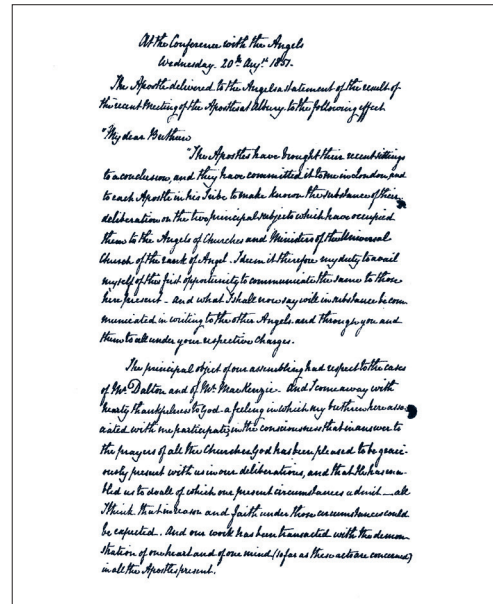 At the Conference with the Angels
Wednesday. 20th Augst 1851.
The Apostle delivered to the Angels a statement of the result of
the recent Meeting of the Apostles at Albury to the following effect
"My dear Brethren
"The Apostles have brought their recent sittings
to a conclusion, and they have committed it to me in London, and
to each Apostle in his Tribe to make known the substance of their
deliberation on the two principal subjects which have occupied
them to the Angels of Churches and Ministers of the Universal
Church of the rank of Angel. I deem it therefore my duty to avail
myself of this first opportunity to communicate the same to those
here present - And what I shall now say will in substance be com
municated in writing to the other Angels and through you and
them to all under your respective charges.
The principal object of our assembling had respect to the cases
of Mr. Dalton and of Mr. MacKenzie - And I come away with
hearty thankfulness to God - a feeling in which my brethren here asso
ciated with me participate, in the consciousness that in answer to
the prayers of all the Churches God has been pleased to be graci-
ously present with us in our deliberations, and that He has ena-
bled us to do all of which our present circumstances admit - all
I think that in reason and faith under those circumstances could
be expected. And our work has been transacted with the demon
stration of one heart and of one mind (so far as these acts are concerned)
in all the Apostles present.